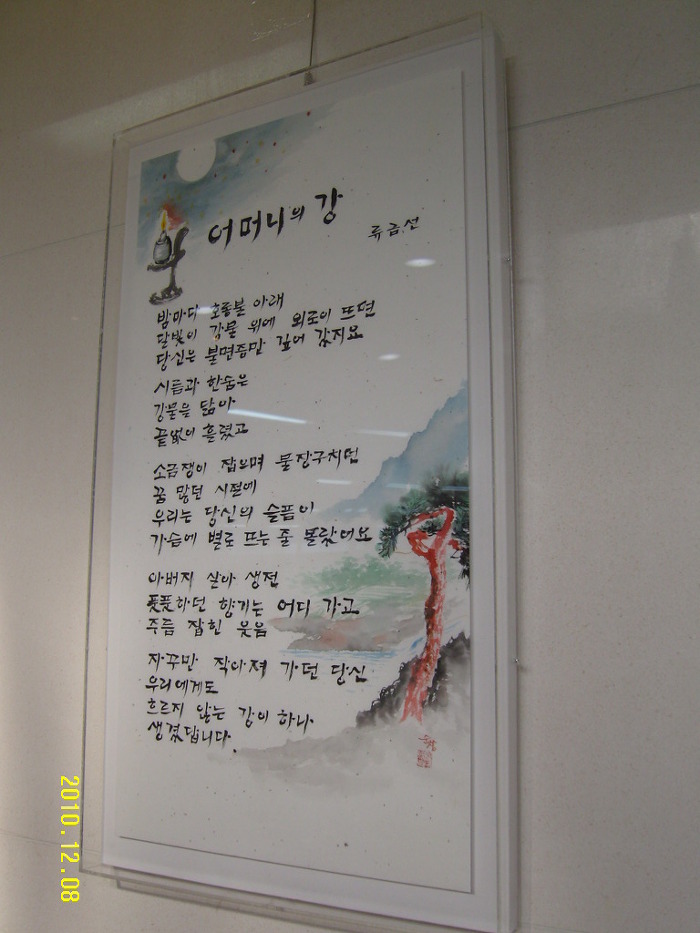 어머니의 강
류금선
밤마다 호롱불 아래
달빛이 강물 위에 외로이 뜨면
당신은 불면증만 깊어 갔지요
시름과 한숨은
강물을 닮아
끝없이 흘렀고
소금쟁이 잡으며 물장구치던
꿈 많던 시절에
우리는 당신의 슬픔이
가슴에 별로 뜨는 줄 몰랐어요
아버지 살아 생전
하던 향기는 어디 가고
주름 잡힌 웃음
자꾸만 작아져 가던 당신
우리에게도
흐르지 않는 강이 하나
생겼답니다.
2010.12.08